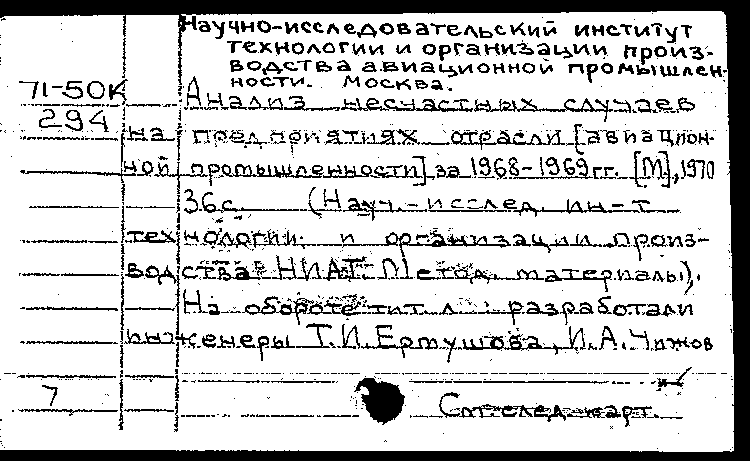 Научно-исследовательский институт
технологии и организации произ-
водства авиационной промышлен-
ности. Москва.
71-50К
294
Анализ несчастных случаев
на предприятиях отрасли [авиацион-
ной промышленности] за 1968-1969 гг. [М], 1970
36с. (Науч.-исслед. ин-т
технологии и организации произ-
водства НИАТ. Метод. материалы).
На обороте тит. л.: разработали
инженеры Т.И. Ертушова, И.А. Чижов
7
См. след. карт.